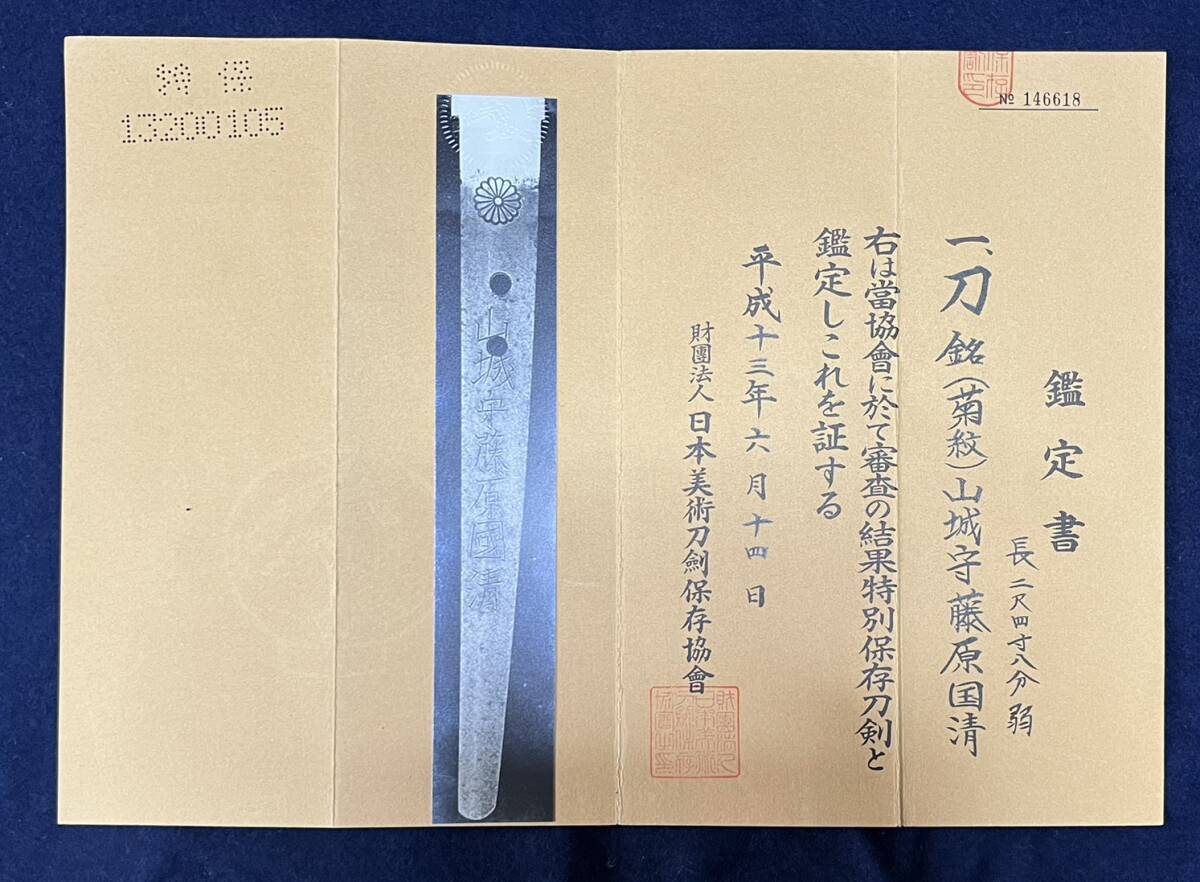 № 146618
鑑定書
一、刀 銘(菊紋)山城守藤原国清
長二尺四寸八分弱
右は當協會に於て審査の結果特別保存刀剣と
鑑定しこれを証する
平成十三年六月十四日
財團法人日本美術刀劍保存協會
山城守藤原國清
特保
13200105